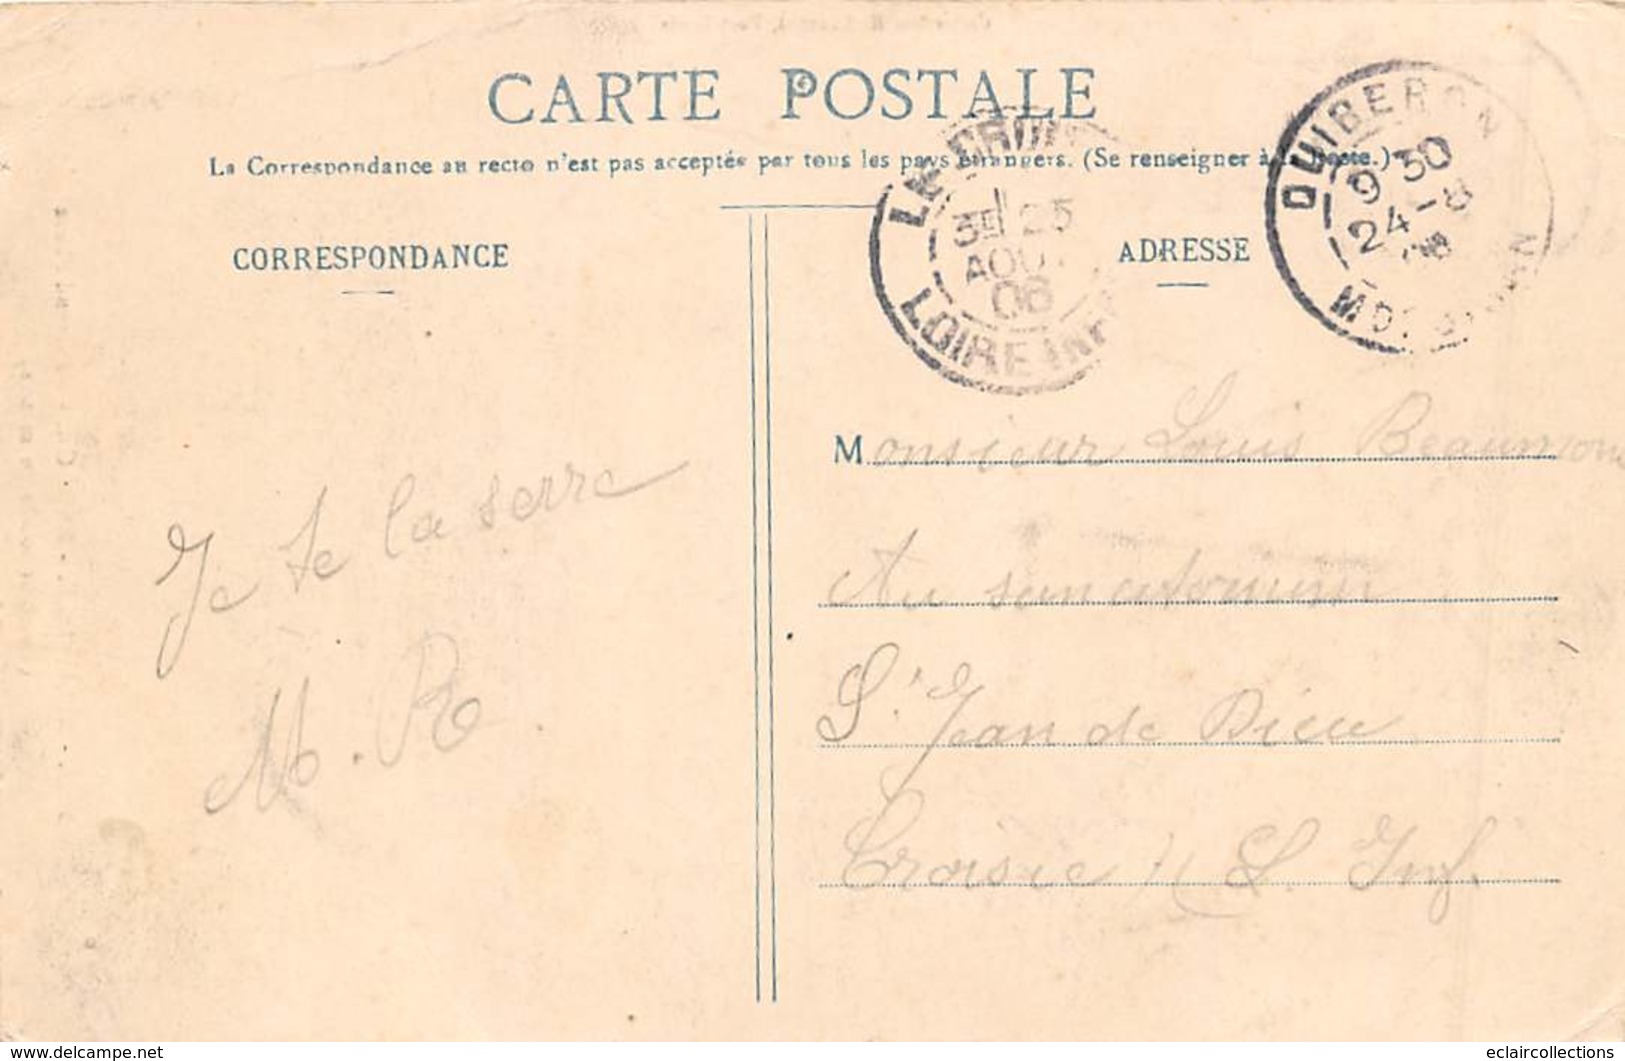 CARTE POSTALE
La Correspondance au recto n'est pas acceptée par tous les pays étrangers. (Se renseigner à la Poste.)
CORRESPONDANCE
ADRESSE
LE CROI
3E 25
AOUT
06
LOIRE INF
QUIBERON
9 30
24-8
06
MORBIHAN
Je te la serre
M. R
Monsieur Louis Beaumon
Au sanatorium
St Jean de Dieu
Croisic L. Inf.
www.delcampe.net
eclaircollections